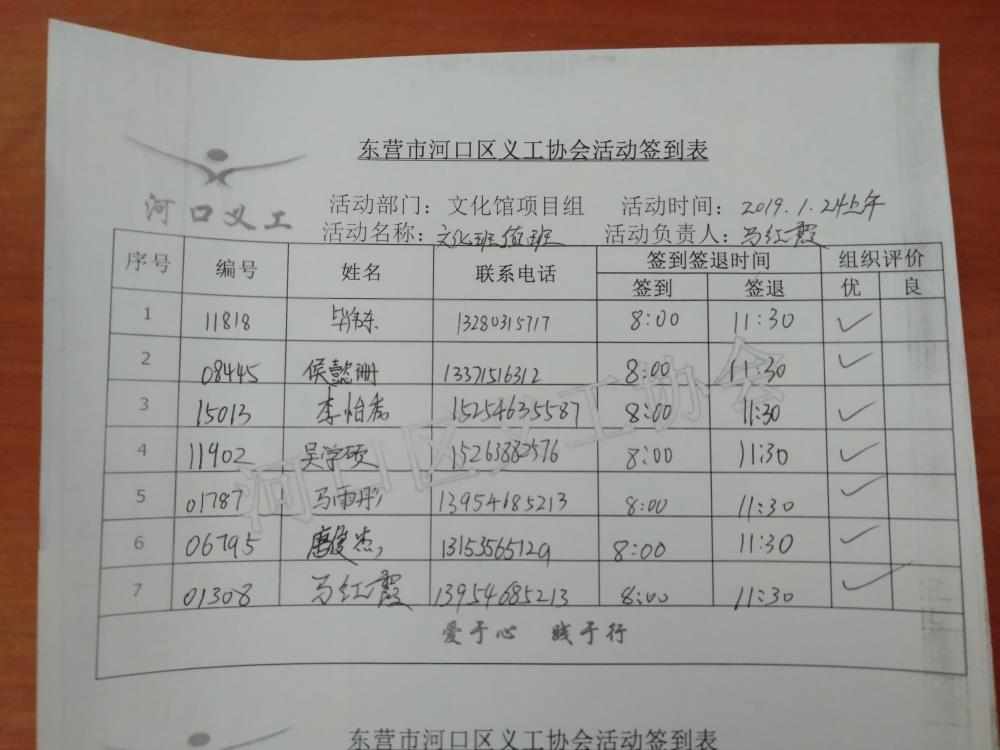 东营市河口区义工协会活动签到表
河口义工
活动部门：文化馆项目组 活动时间：2019.1.24上午
活动名称：文化班值班 活动负责人：马红霞
序号 编号 姓名 联系电话 签到签退时间 组织评价
签到 签退 优 良
1 11818 13280315717 8:00 11:30 ✓
2 08445 侯懿珊 13371516312 8:00 11:30 ✓
3 15013 李怡 15254635587 8:00 11:30 ✓
4 11902 吴学硕 15263882576 8:00 11:30 ✓
5 01787 马雨彤 13954685213 8:00 11:30 ✓
6 06795 唐俊杰 13153565129 8:00 11:30 ✓
7 01308 马红霞 13954685213 8:00 11:30 ✓
爱于心 践于行
河口区义工协会
东营市河口区义工协会活动签到表